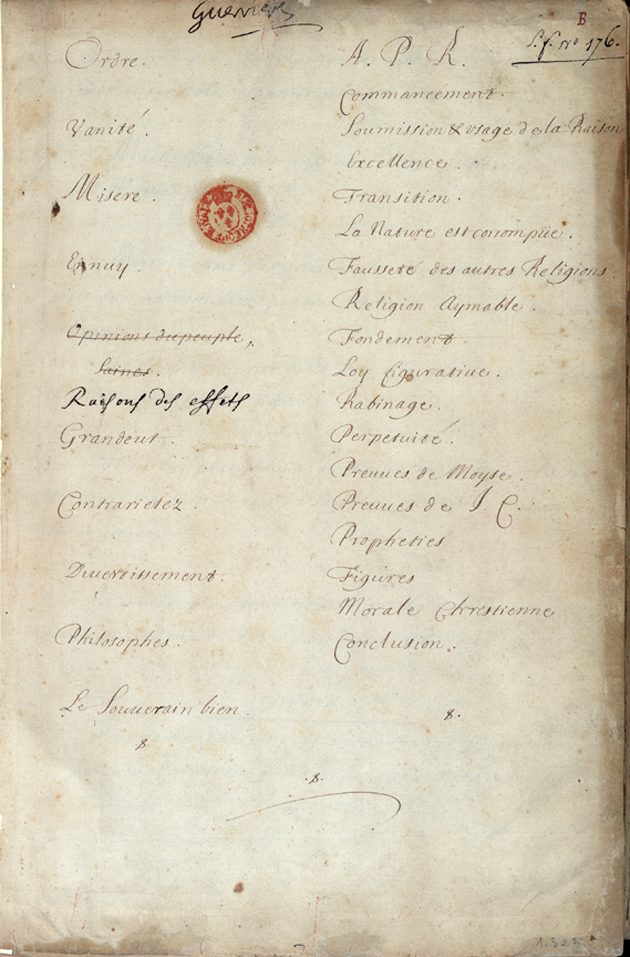 Guerrier
B
S. f. nº 176.
Ordre.
Vanité.
Misere.
Ennuy.
Opinions du peuple,
saines.
Raisons des effets
Grandeur.
Contrarietez.
Divertissement.
Philosophes.
Le Souverain bien.
A. P. R.
Commancement.
Soumission & usage de la Raison
Excellence.
Transition.
La Nature est corrompüe.
Fausseté des autres Religions.
Religion Aymable.
Fondement.
Loy figurative.
Rabinage.
Perpetuité.
Preuves de Moyse.
Preuves de J C.
Propheties
Figures
Morale Chrestienne
Conclusion.